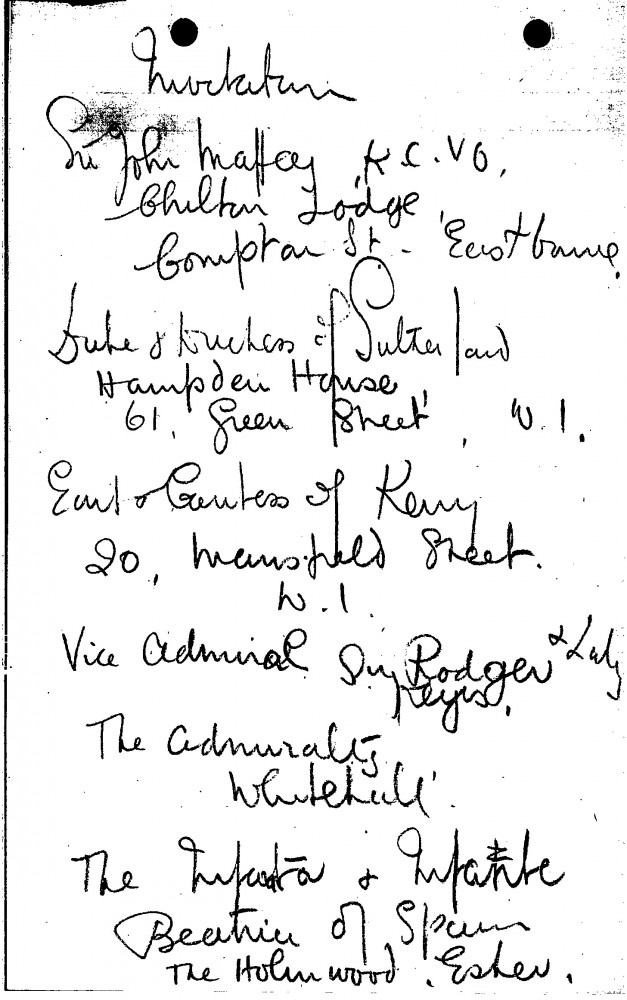 Invitation
Sir John Maffey, K.C.VO,
Chilton Lodge
Compton St - Eastbourne,
Duke & Duchess of Sutherland
Hampden House,
61, Green Street, W.1.
Earl & Countess of Kerry
20, Mansfield Street.
W.1.
Vice Admiral Sir Rodger & Lady
Keyes.
The Admiralty
Whitehall.
The Infanta & Infante
Beatrice of Spain
The Holmwood, Esher.